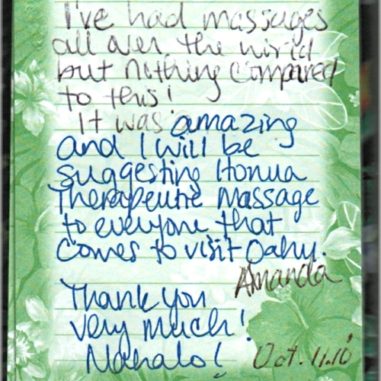 I've had massages
all over the world
but nothing compared
to this!
It was amazing
and I will be
suggesting Honua
Therapeutic Massage
to everyone that
comes to visit Oahu.
Amanda
Thank you
very much!
Mahalo!
Oct. 11.10